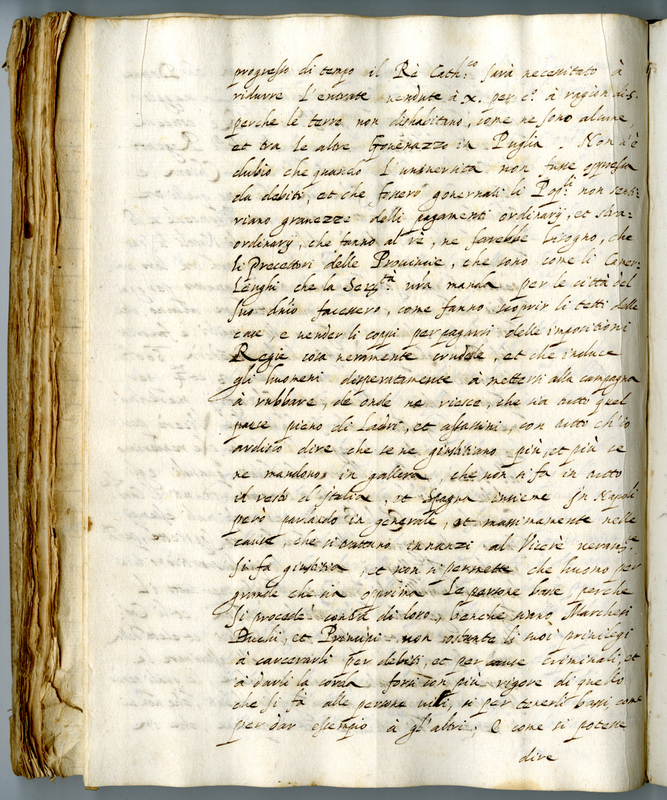 progresso di tempo il Rè Cath.co sarà necessitato à
ridurre l'entrate vendute à x. per c.o à ragion di 5.
perche le terre non dishabitano, come ne sono alcune,
et tra le altre Giovenazzo in Puglia. Non v'è
dubio che quando l'università non fusse oppressa
da debiti, et che fossero governati li Pop.li non senti-
riano gravezze delli pagamenti ordinarij, et stra-
ordinarij, che fanno al rè, ne farebbe bisogno, che
li Precettori delle Provincie, che sono come li Camer-
lenghi che la Ser.tà v'ra manda per le città del
suo d'nio facessero, come fanno scoprir li tetti delle
case, e vender li coppi per pagarsi delle impositioni
Regie cosa veramente crudele, et che induce
gli huomeni desperatamente à mettersi alla campagna
à rubbare, de onde ne riesce, che sia tutto quel
paese pieno di Ladri, et assassini, con tutto ch'io
ardisco dire che se ne giustitiano più, et più se
ne mandono in gallera, che non si fa in tutto
il resto d'Italia, et Spagna insieme. In Napoli
però parlando in generale, et massimamente nelle
cause, che si trattano innanzi al Vicerè veram.te
si fa giustitia, et non si permette che huomo per
grande che sia opprima le persone basse, perche
si procede contra di loro, benche siano Marchesi
Duchi, et Principi non ostante li suoi privilegi
à carcerarli per debiti, et per cause criminali, et
à darli la corda forsi con più rigore di quello
che si fa alle persone vili, si per tenerli bassi, come
per dar essempio à gl'altri, e come si potesse
dire